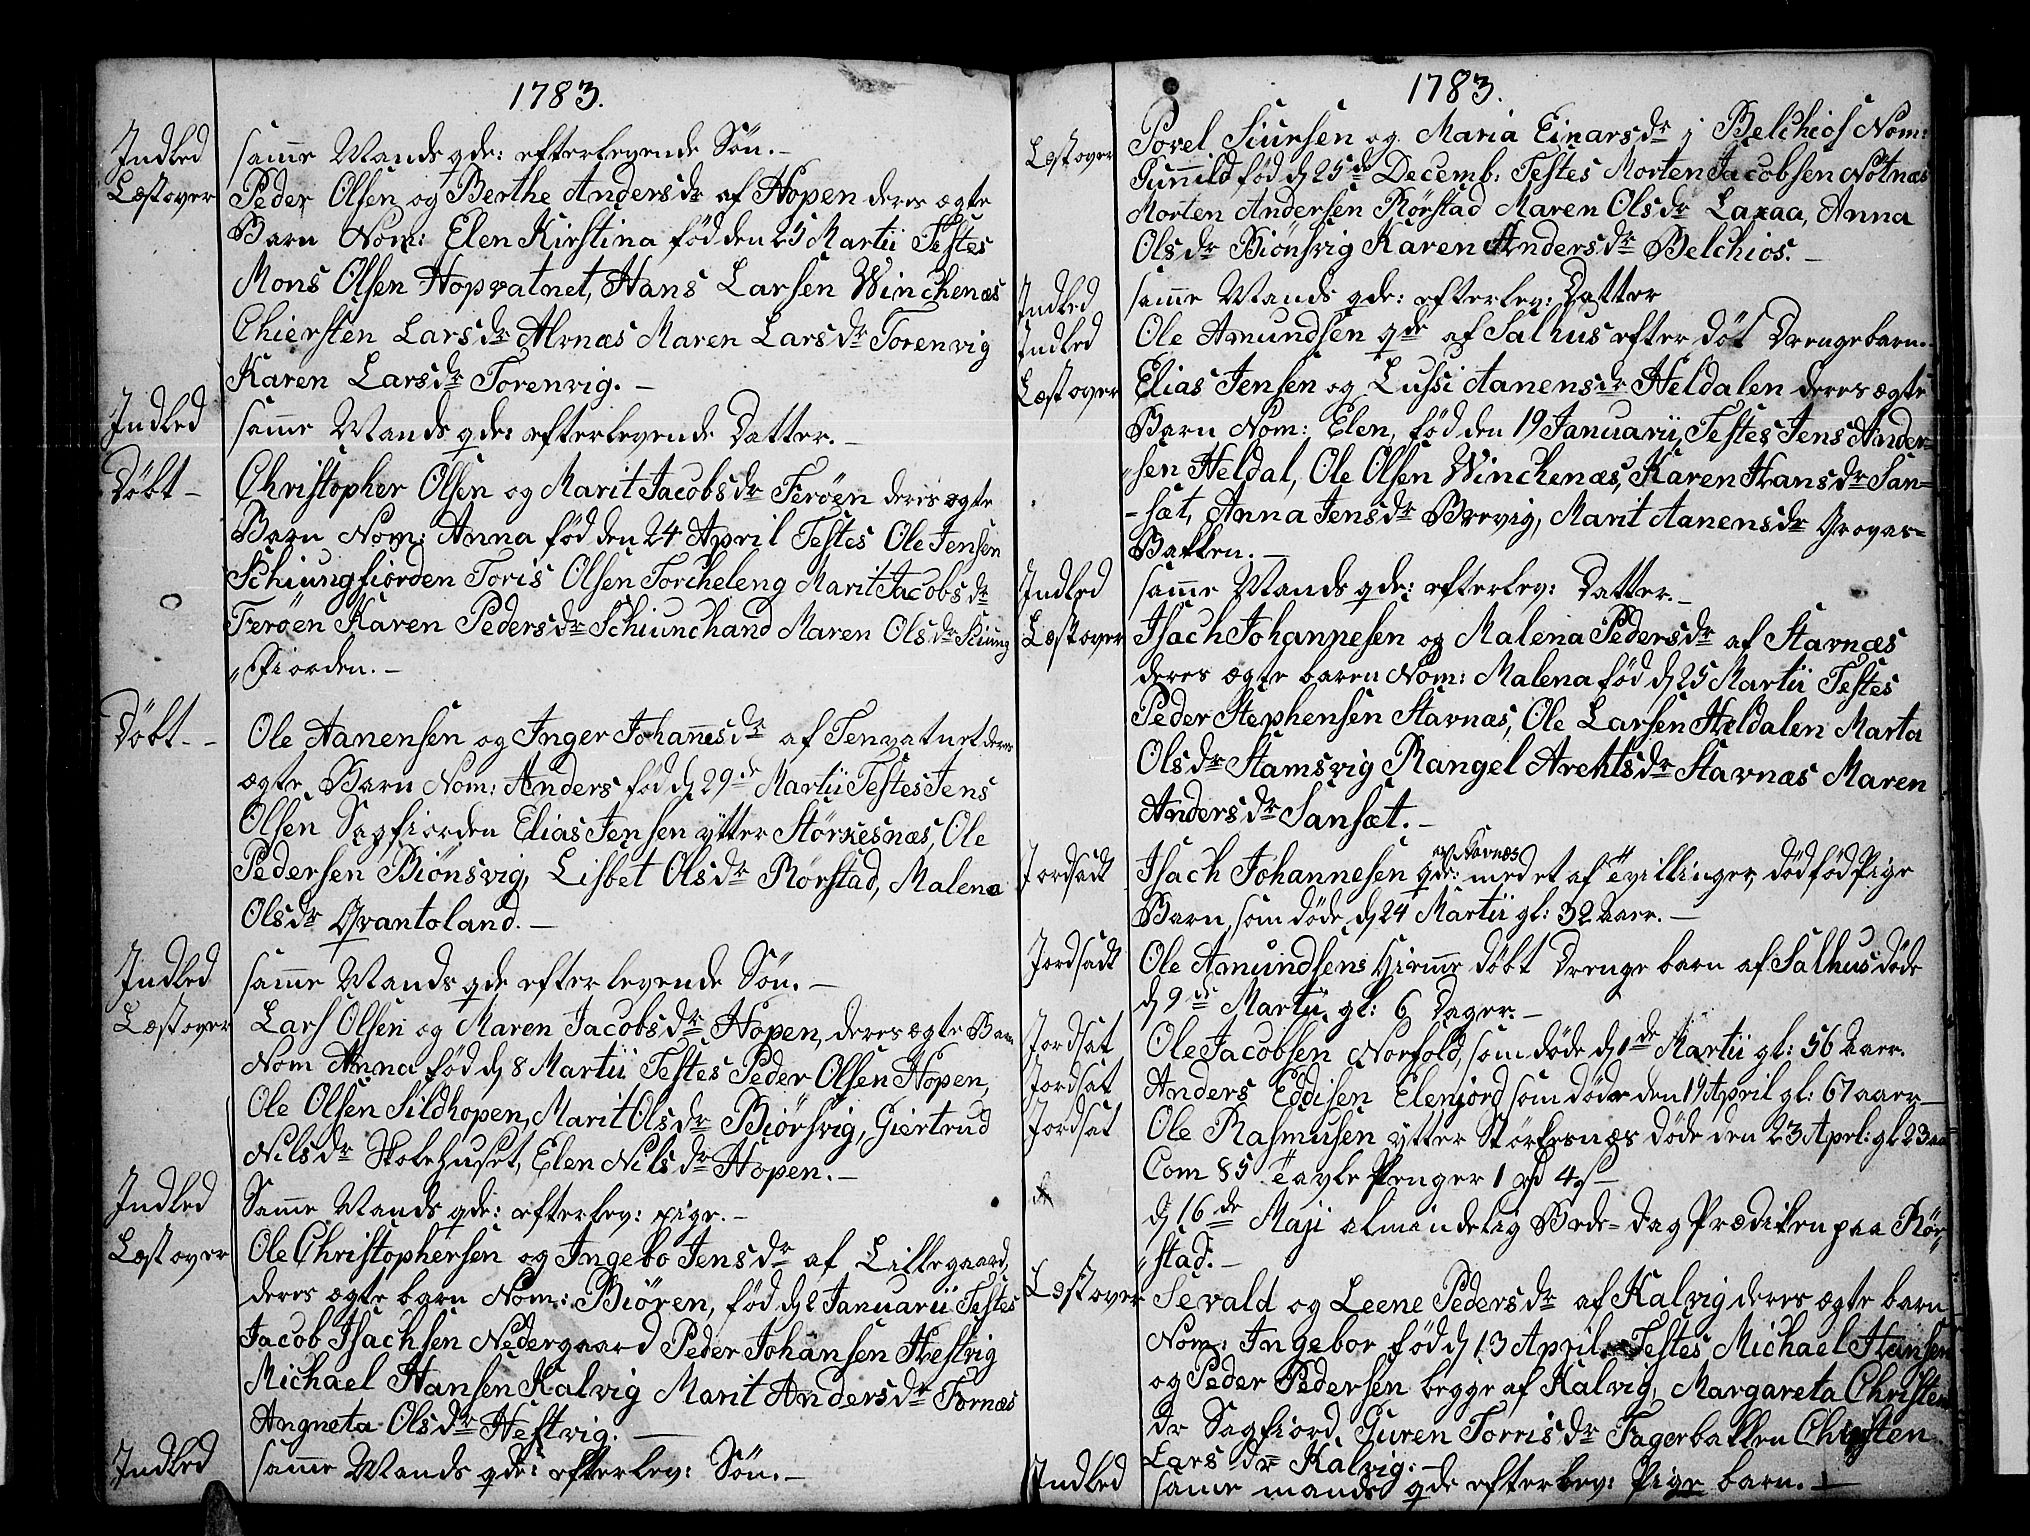 1783.
Indled samme Mands qde: efterlevende Søn.–
Læst over Peder Olsen og Berthe Andersdr af Hopen deres ægte
Barn Nom: Elen Kirstina fød den 25 Martii Testes
Mons Olsen Hopvatnet, Hans Larsen Winchenæs
Chiersten Larsdr Alvnæs Maren Larsdr Torenvig
Karen Larsdr Torenvig.–
Indled samme Mands qde: efterlevende Datter.–
Døbt – Christopher Olsen og Marit Jacobsdr Ferøen deres ægte
Barn Nom: Anna fød den 24 April Testes Ole Jensen
Schiungfiorden Toris Olsen Torcheleng Marit Jacobsdr
Ferøen Karen Pedersdr Schiunchand Maren Olsdr Schiung
„Fiorden.–
Døbt.-- Ole Aanensen og Inger Johannesdr af Tenvatnet deres
ægte Barn Nom: Anders fød d 29de Martii Testes Jens
Olsen Sagfiorden Elias Jensen ytter Størkesnæs, Ole
Pedersen Biønsvig, Lisbet Olsdr Rørstad, Malena
Olsdr Qvantoland.–
Indled samme Mands qde efterlevende Søn.–
Læst over Lars Olsen og Maren Jacobsdr Hopen, deres ægte Barn
Nom Anna fød d 8 Martii Testes Peder Olsen Hopen,
Ole Olsen Sildhopen, Marit Olsdr Biørsvig, Giertrud
Nilsdr Skolehuset, Elen Nilsdr Hopen.–
Indled Samme Mands qde: efterlev: pige.–
Læst over Ole Christophersen og Ingebo Jensdr af Lillegaard,
deres ægte barn Nom: Biøren, fød d 2 Januarii Testes
Jacob Isachsen Nedergaard Peder Johansen Hestvig
Michael Hansen Kalvig Marit Andersdr Fornæs
Angneta Olsdr Hestvig.–
Indled samme Mands qde: efterlev: Søn.–
1783.
Læst over Povel Siursen og Maria Einarsdr i Belchios Nom:
Gunnild fød d 25de Decemb: Testes Morten Jacobsen Nøtnæs
Morten Andersen Rørstad Maren Olsdr Laxaa, Anna
Olsdr Biønsvig Karen Andersdr Belchios.–
Indled samme Mands qde: efterlev: Datter
Indled Ole Amundsen qde af Salhus efter døt Drengebarn.
Læst over Elias Jensen og Lussi Aanensdr Heldalen deres ægte
Barn Nom: Elen, fød den 19 Januarii, Testes Jens Ander-
„sen Heldal, Ole Olsen Winchenæs, Karen Hansdr San=
-sæt, Anna Jensdr Brevig, Marit Aanensdr Grovas=
Bakken.–
Indled samme Mands qde: efterlev: Datter.–
Læst over Isach Johannesen og Malena Pedersdr af Stavnæs
deres ægte baren Nom: Malena fød d 25 Martii Testes
Peder Stephensen Stavnæs, Ole Larsen Heldalen Marta
Olsdr Stamsvig Rangel Arentsdr Stavnæs Maren
Andersdr Sansæt.–
Jordsadt Isach Johannesen qde: af Stavnæs med et af tvillinger, dødfød Pige
Barn, som døde d 24 Martii gl: 32 Aar.–
Jordsadt Ole Amundsens hiemme døbt Drenge barn af Salhus døde
d 9de Martii gl: 6 Dager.–
Jordsat Ole Jacobsen Norfold, som døde d 1de Martii gl: 56 Aar.
Jordsat Anders Eddisen Elenjord som døde den 19 April gl: 67 aar–
Jordsat Ole Rasmusen ytter Størkesnæs døde den 23 Apri: gl 23 aar
Com 85 tavle Penger 1 rd 4 s–
d 16de Maji almindelig Bede=Dag Prædiken paa Rør-
„stad.–
Læst over Sevald og Leene Pedersdr af Kalvig deres ægte barn
Nom: Ingebor fød d 13 April. Testes Michael Hansen
og Peder Pedersen begge af Kalvig, Margareta Christens
dr Sagfiord, Guren Torrisdr Fagerbakken Christen
Larsdr Kalvig.–
Indled samme mands qde efterlev: Pige barn.–